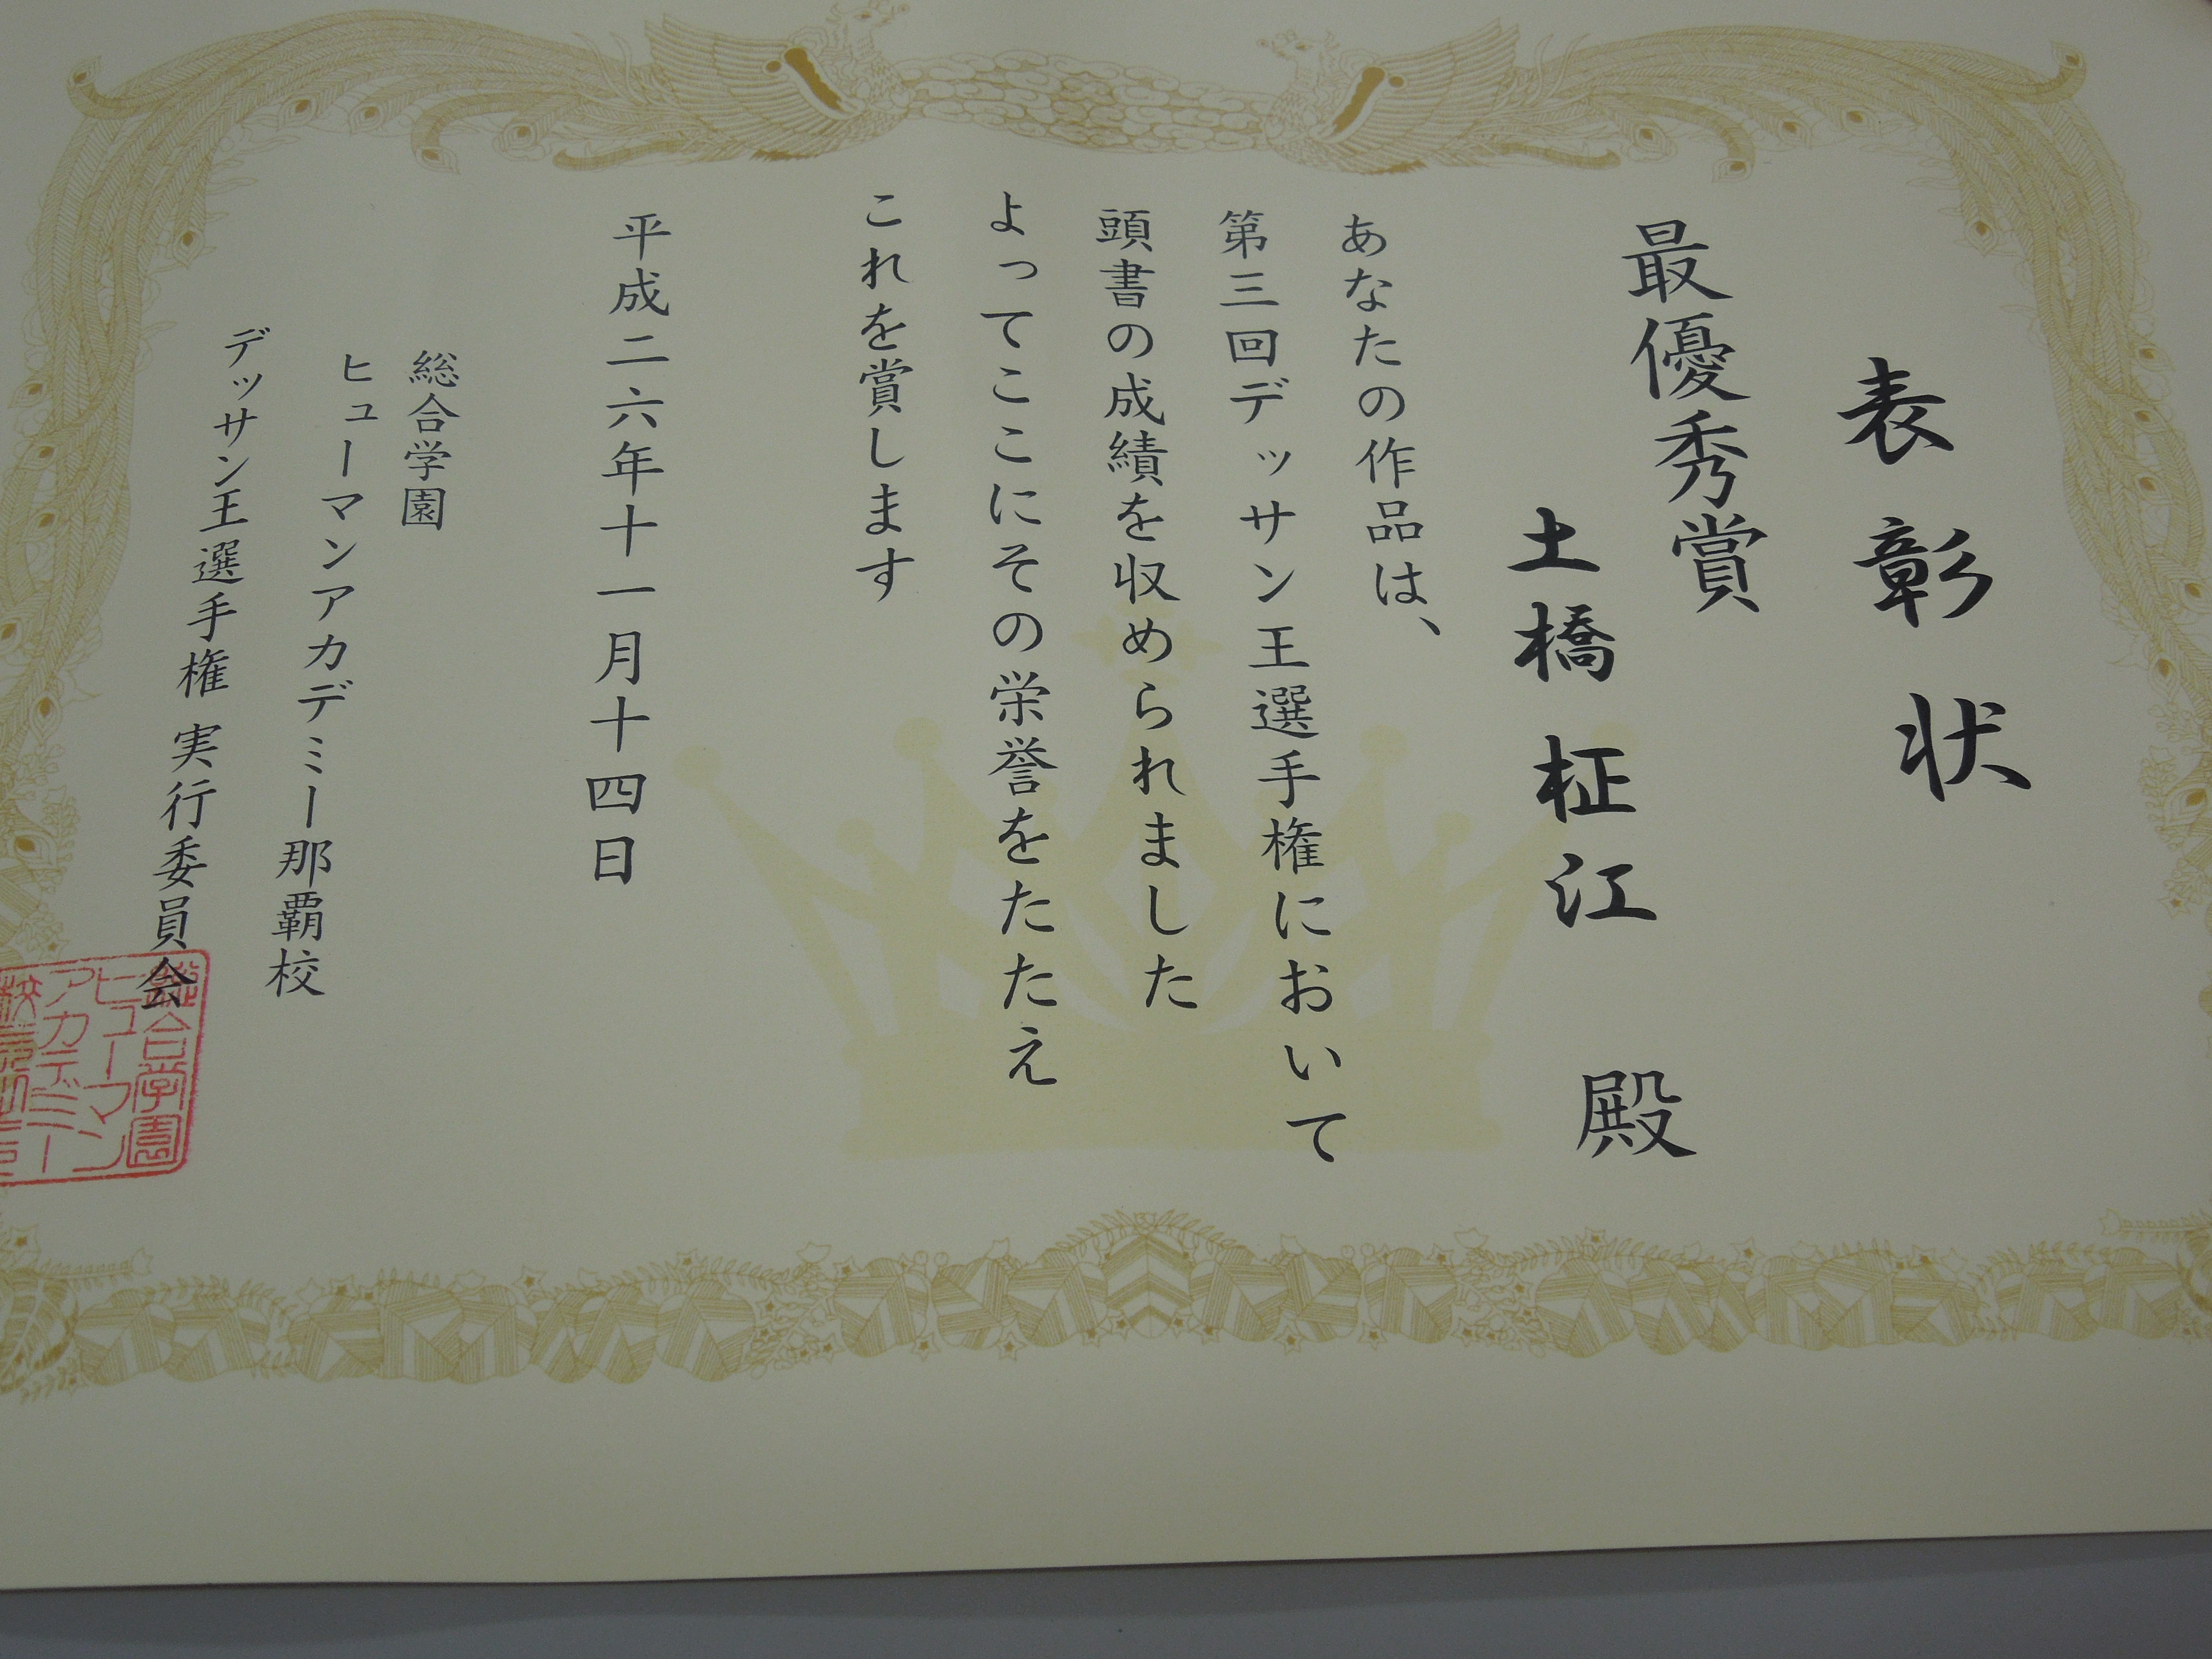 表彰状
最優秀賞
土橋柾江 殿
あなたの作品は、
第三回デッサン王選手権において
頭書の成績を収められました
よってここにその栄誉をたたえ
これを賞します
平成二六年十一月十四日
総合学園
ヒューマンアカデミー那覇校
デッサン王選手権 実行委員会
総合学園
ヒューマン
アカデミー